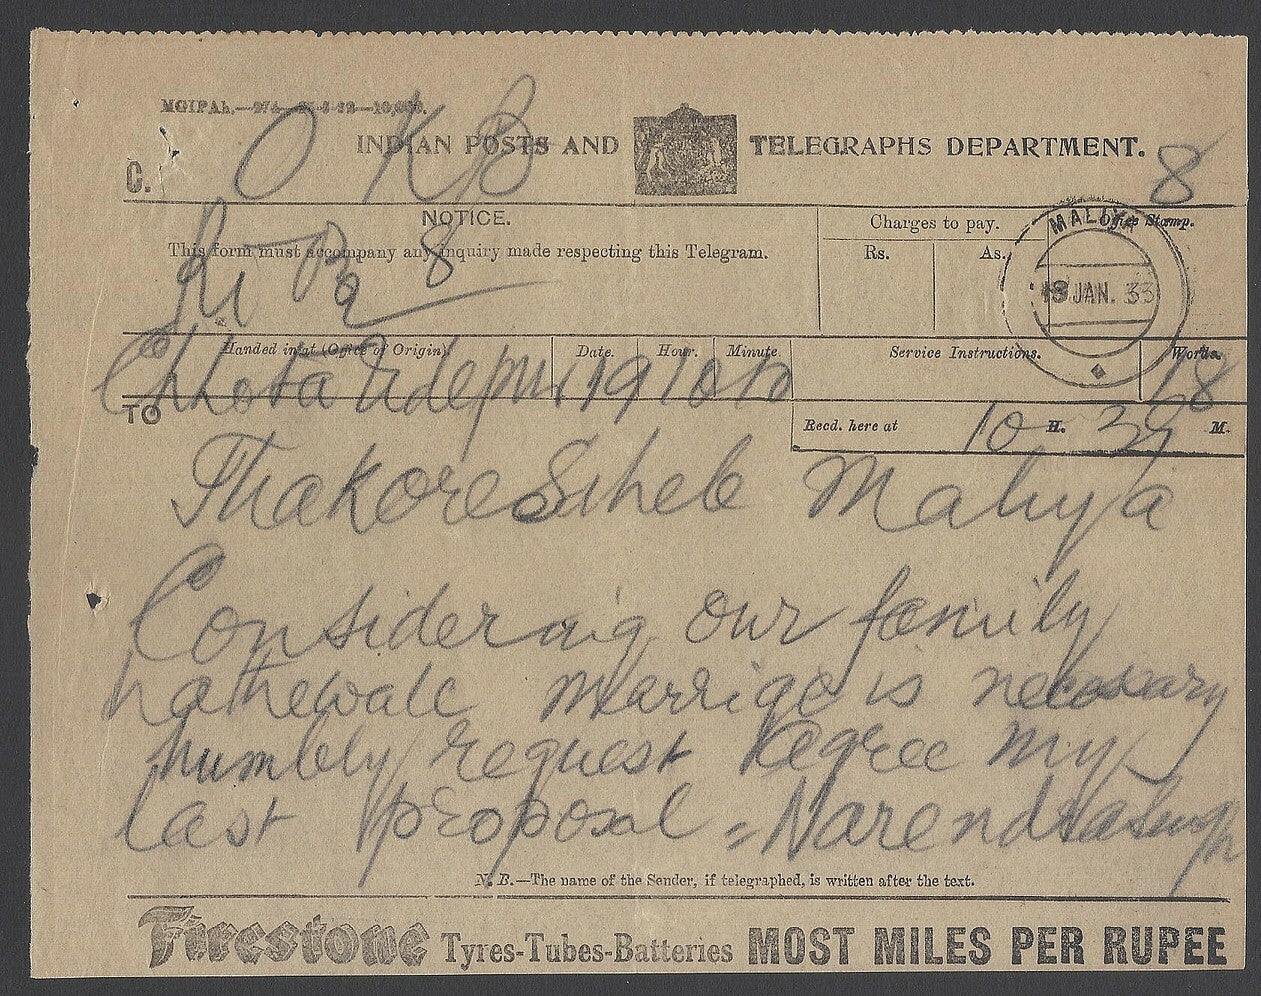 O K 8
INDIAN POSTS AND TELEGRAPHS DEPARTMENT.
C.
8
NOTICE.
This form must accompany any inquiry made respecting this Telegram.
8
Charges to pay.
Rs. As.
Office Stamp.
MALIYA
JAN. 33
Handed in at (Office of Origin). Date. Hour. Minute. Service Instructions. Words.
Chhota Udepur 19 10 18
TO
Recd. here at 10 H. 39 M.
Thakore Saheb Maliya
Considering our family
marriage is necessary
humbly request agree my
last proposal = Narendrasingh
N. B.—The name of the Sender, if telegraphed, is written after the text.
Firestone Tyres-Tubes-Batteries MOST MILES PER RUPEE